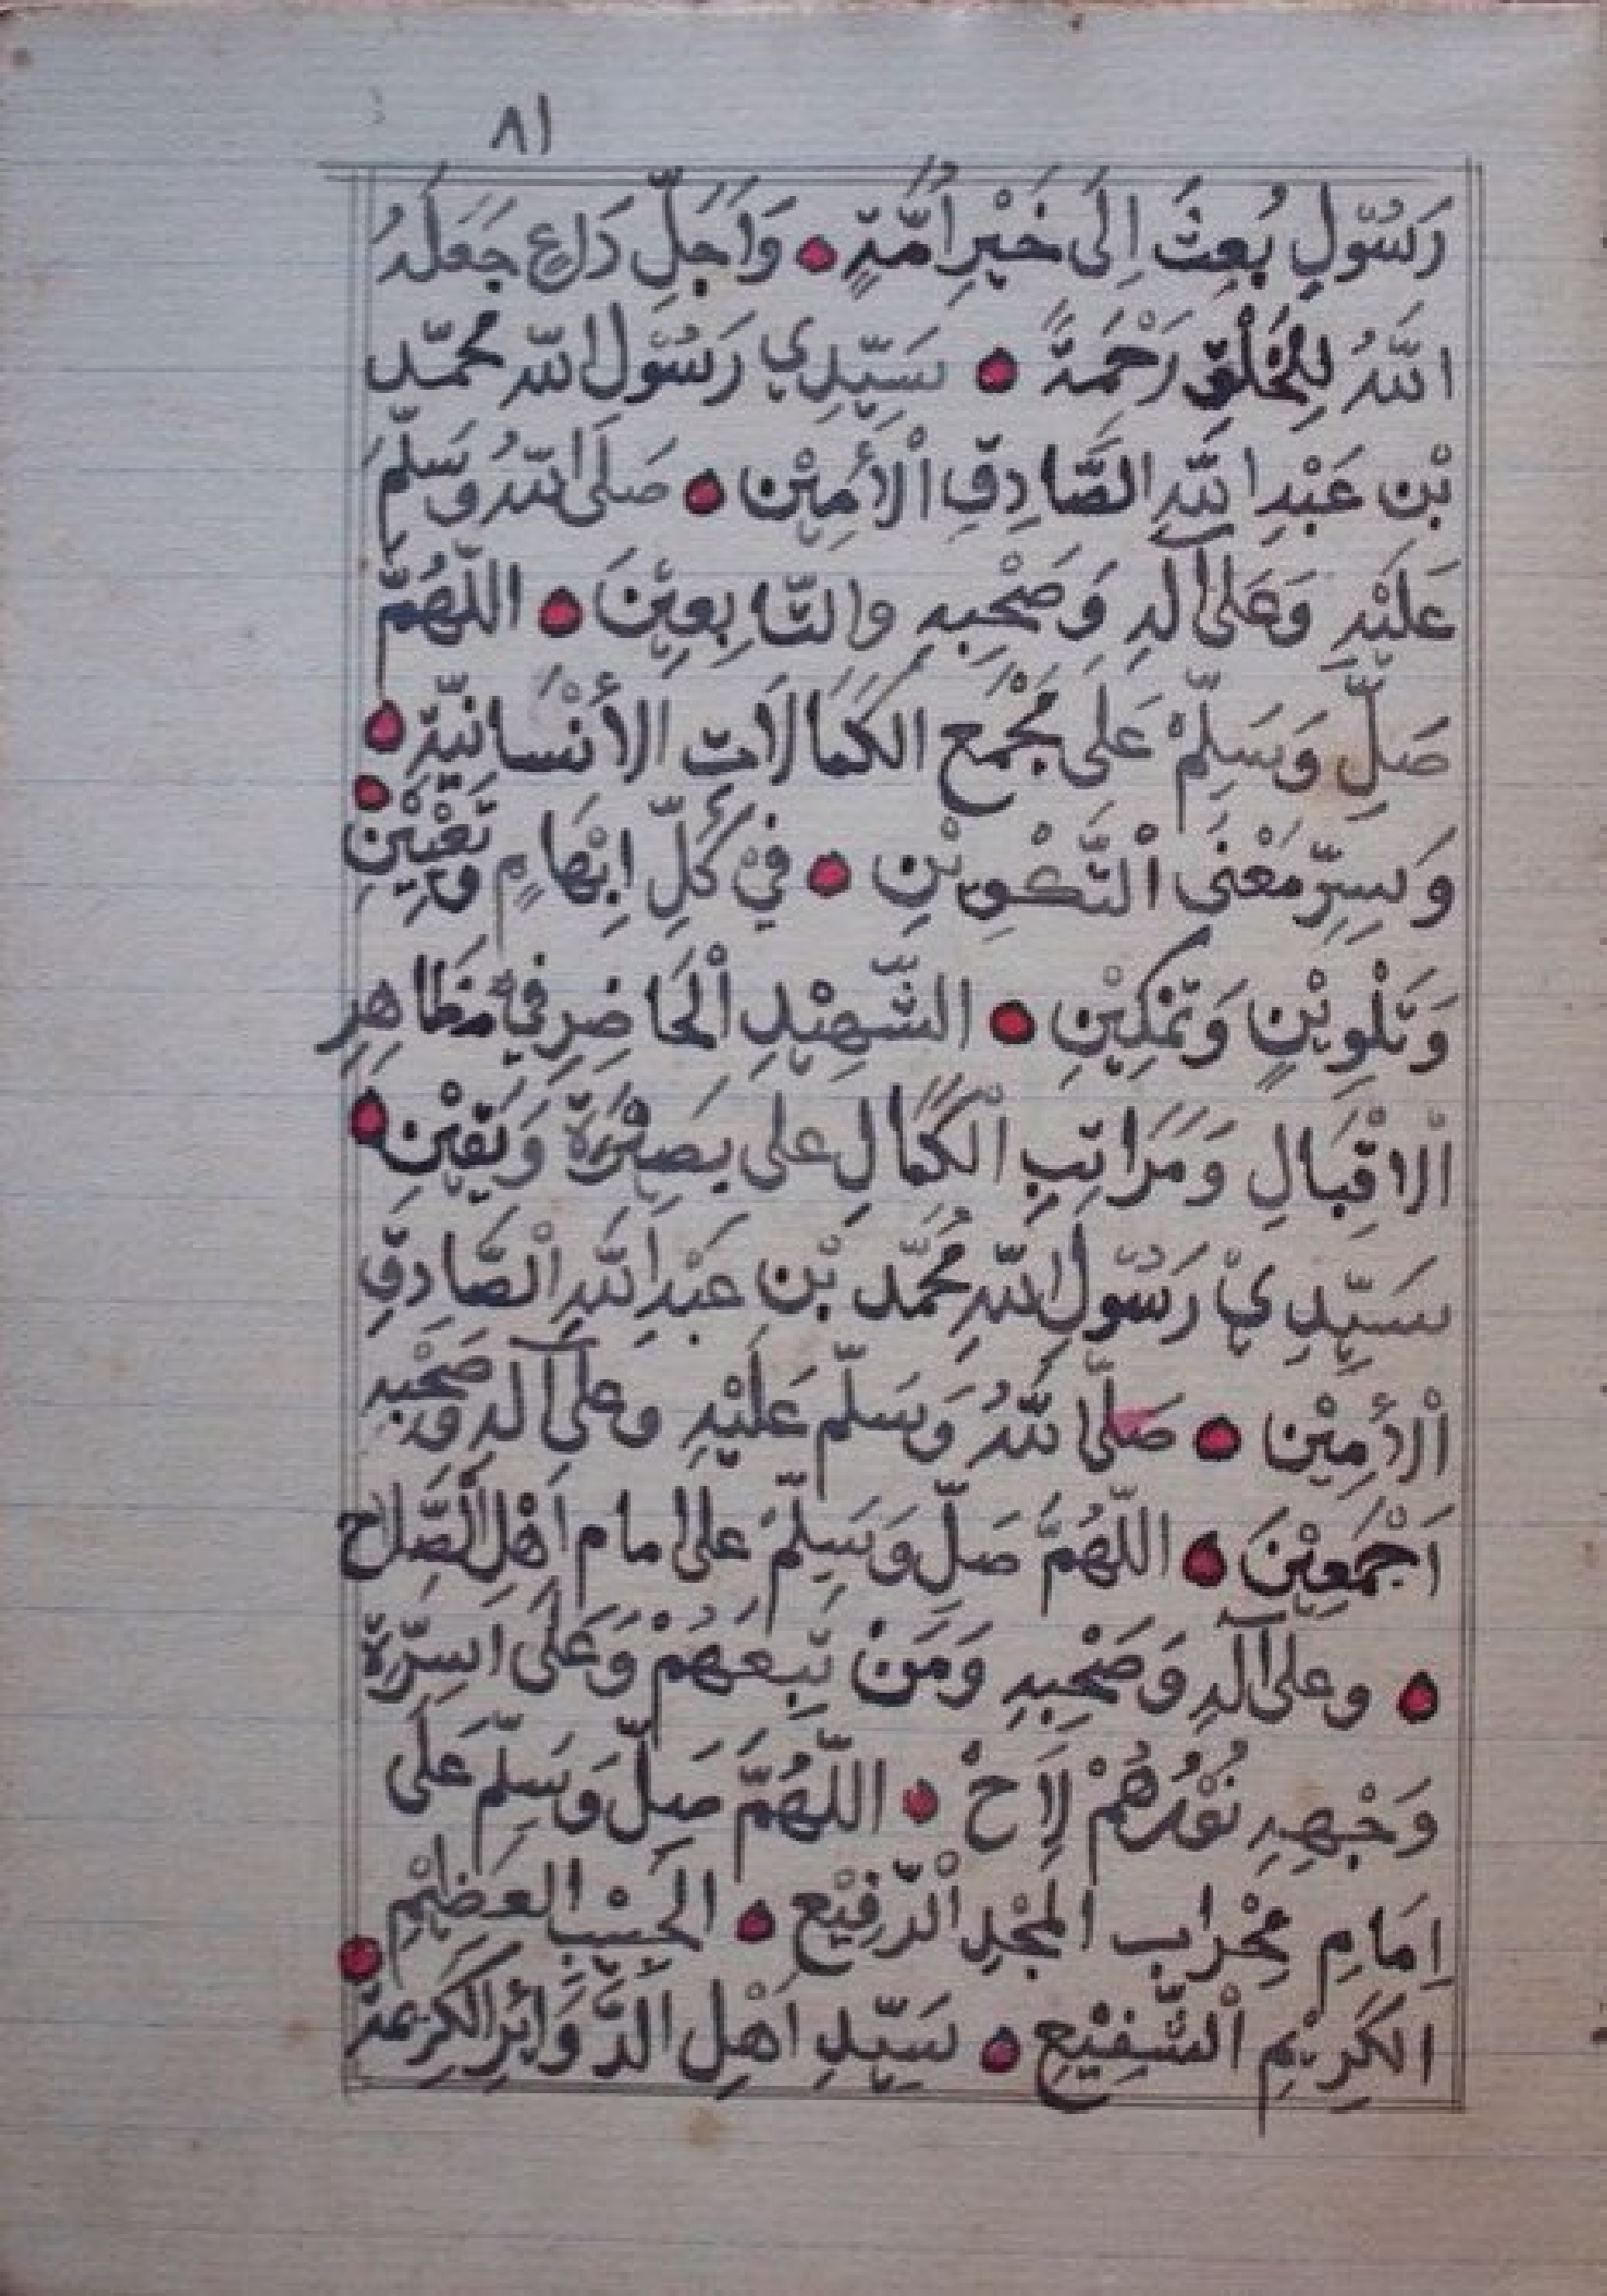 ٨١
رَسُوْلٍ بُعِثَ اِلَى خَيْرِ اُمَّةٍ • وَاَجَلِّ دَاعٍ جَعَلَهُ
اللّٰهُ لِلْخَلْقِ رَحْمَةً • سَيِّدِي رَسُوْلِ اللّٰه محمّد
بْن عَبْدِ اللّٰهِ الصَّادِقِ الْأَمِيْن • صَلَى اللّٰهُ وَسَلَّمَ
عَلَيْهِ وَعَلَى آلِهِ وَصَحْبِهِ والتَّابِعِيْنَ • اللّهُمَّ
صَلِّ وَسَلِّمْ عَلَى مَجْمَعِ الكَمَالَاتِ الأنْسَانيّةِ •
وَسِرِّ مَعْنَى الْتَّكْوِيْنِ • فِيْ كُلِّ اِبْهَامٍ وَتَعْيِيْنٍ •
وَتَلْوِيْنٍ وَتَمْكِيْنِ • الشَّهِيْدِ الْحَاضِرِ فِيْ مَظَاهِرِ
الْاقْبَالِ وَمَرَاتِبِ الْكَمَالِ على بَصِيْرَة وَيَقِيْن •
سَيِّدِيْ رَسُوْلِ اللّٰهِ مُحَمَّد بْنِ عَبْدِ اللّٰهِ الْصَّادِقِ
الْأَمِيْن • صَلَّى اللّٰهُ وَسَلّم عَلَيْهِ وعلى آلِهِ وَصَحْبِهِ
اَجْمَعِيْنَ • اللّهُمَّ صَلِّ وَسَلِّمْ على امام اَهْلِ الْصَّلاح
• وعلى آلِهِ وَصَحْبِهِ وَمَنْ تَبِعَهُمْ وَعَلَى اسِرَّة
وَجْهِهِ نُوْرُهُمْ لاَحْ • اللّهُمَّ صَلِّ وَسَلِّم عَلَى
اِمَامِ مِحْرَاب المَجْدِ الْرّفِيْع • الحَبِيْبِ العَظِيْمِ •
الكَرِيْمِ الْشَّفِيْعِ • سَيِّدِ اَهْلِ الدَّوَائِرِ الكَرِيمة